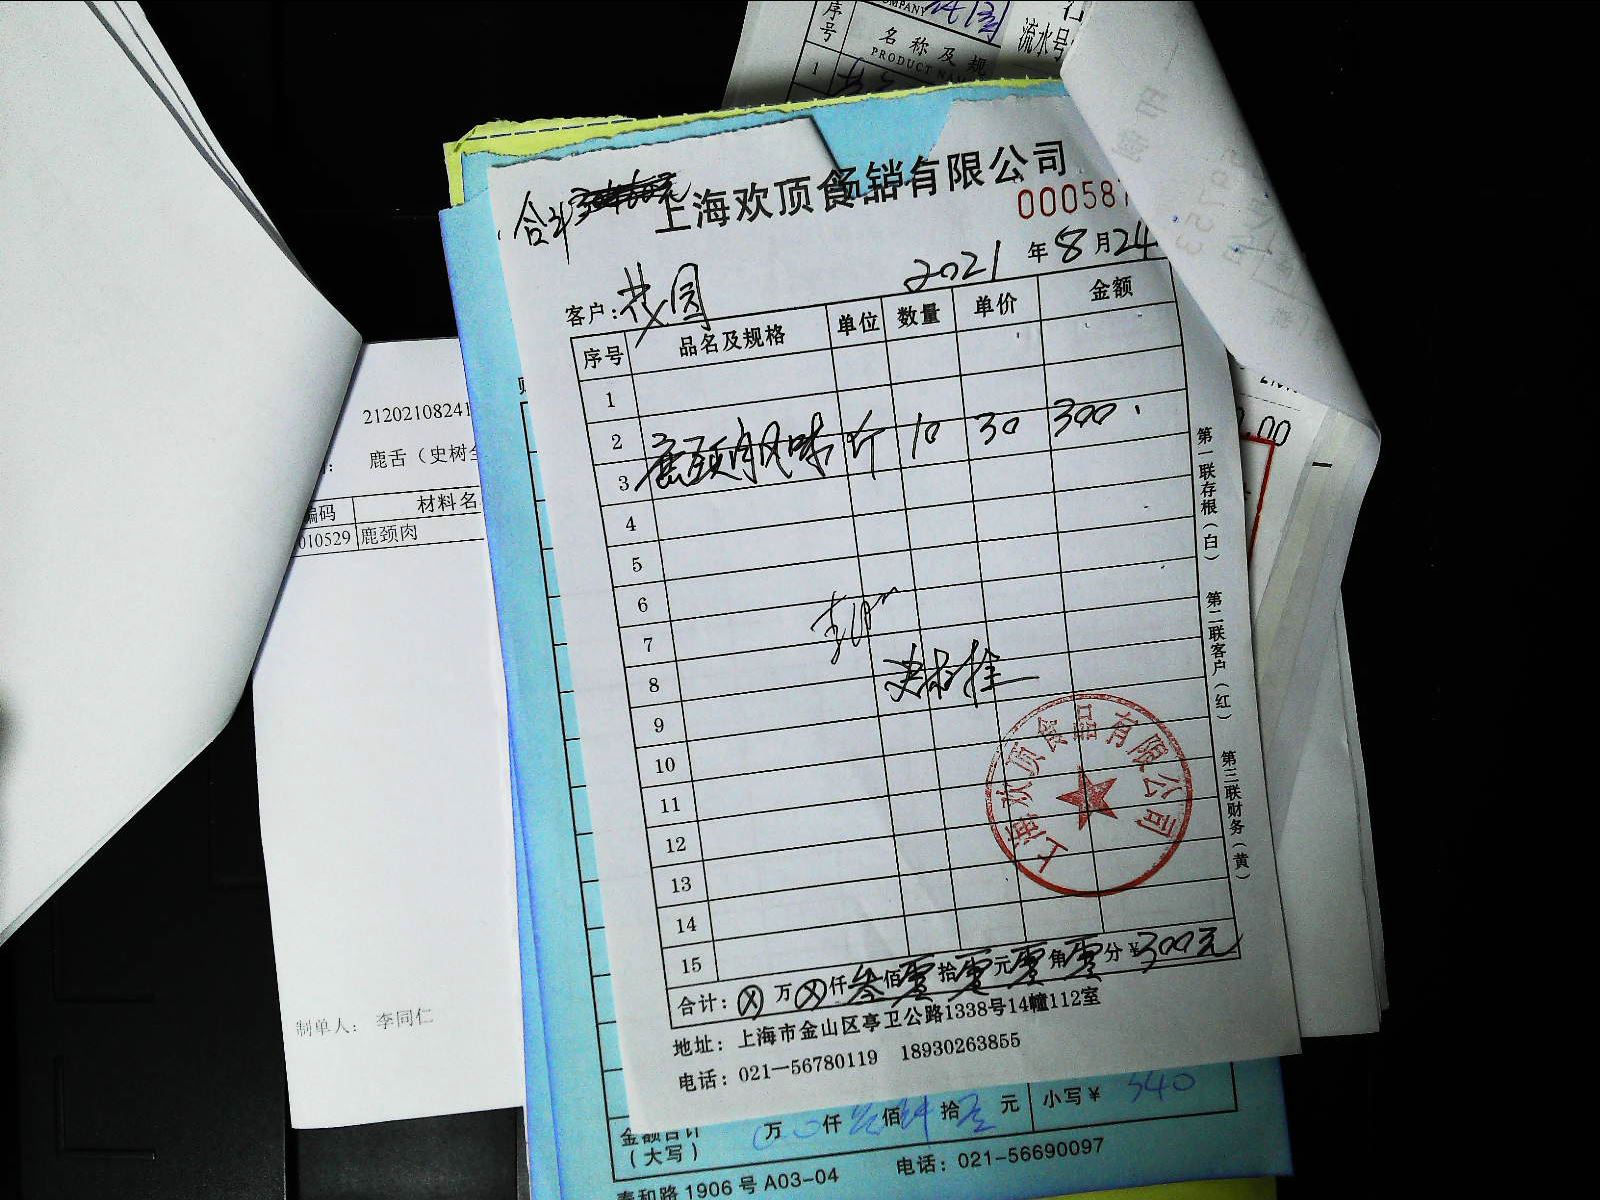 序号
名称及规
PRODUCT NAM
流水号
1
合计
上海欢顶食品销有限公司
000587
2021年8月24
客户:茂园
序号 品名及规格 单位 数量 单价 金额
1
2 鹿颈肉风味 斤 10 30 300.
3
4
5
6
7
8 史树全
9
10
11
12
13
14
15
上海欢顶食品有限公司
合计:ⓧ万ⓧ仟叁佰零拾零元零角零分¥300元
地址:上海市金山区亭卫公路1338号14幢112室
电话:021-56780119 18930263855
第一联存根(白)
第二联客户(红)
第三联财务(黄)
21202108241
鹿舌(史树全
编码 材料名
010529 鹿颈肉
制单人: 李同仁
.00
金额合计
(大写)
万 仟 佰 拾 元 小写¥ 340
泰和路1906号A03-04 电话:021-56690097